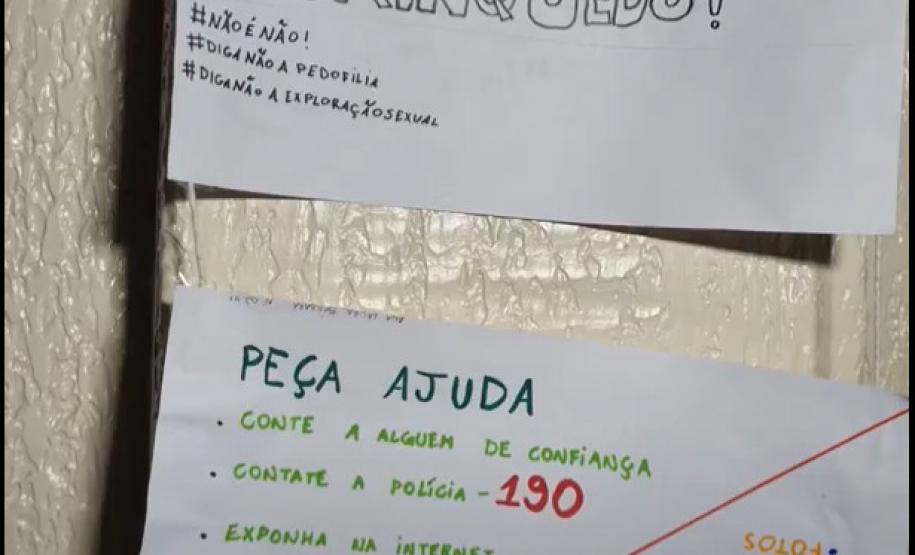 BRINQUEDO!
#NÃO É NÃO!
#DIGA NÃO A PEDOFILIA
#DIGA NÃO A EXPLORAÇÃO SEXUAL
PEÇA AJUDA
• CONTE A ALGUEM DE CONFIANÇA
• CONTATE A POLÍCIA - 190
• EXPONHA NA INTERNET
•FOTOS